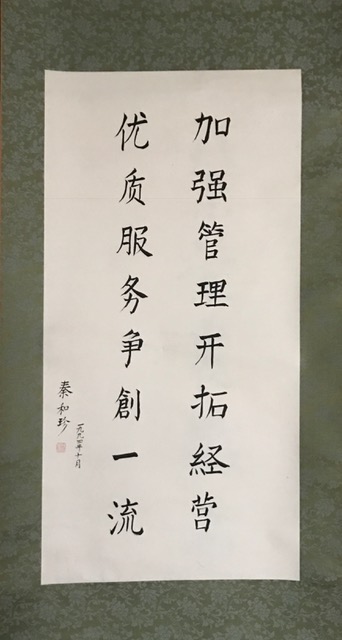 加强管理开拓経营
优质服务争創一流
一九九四年十月
秦和珍